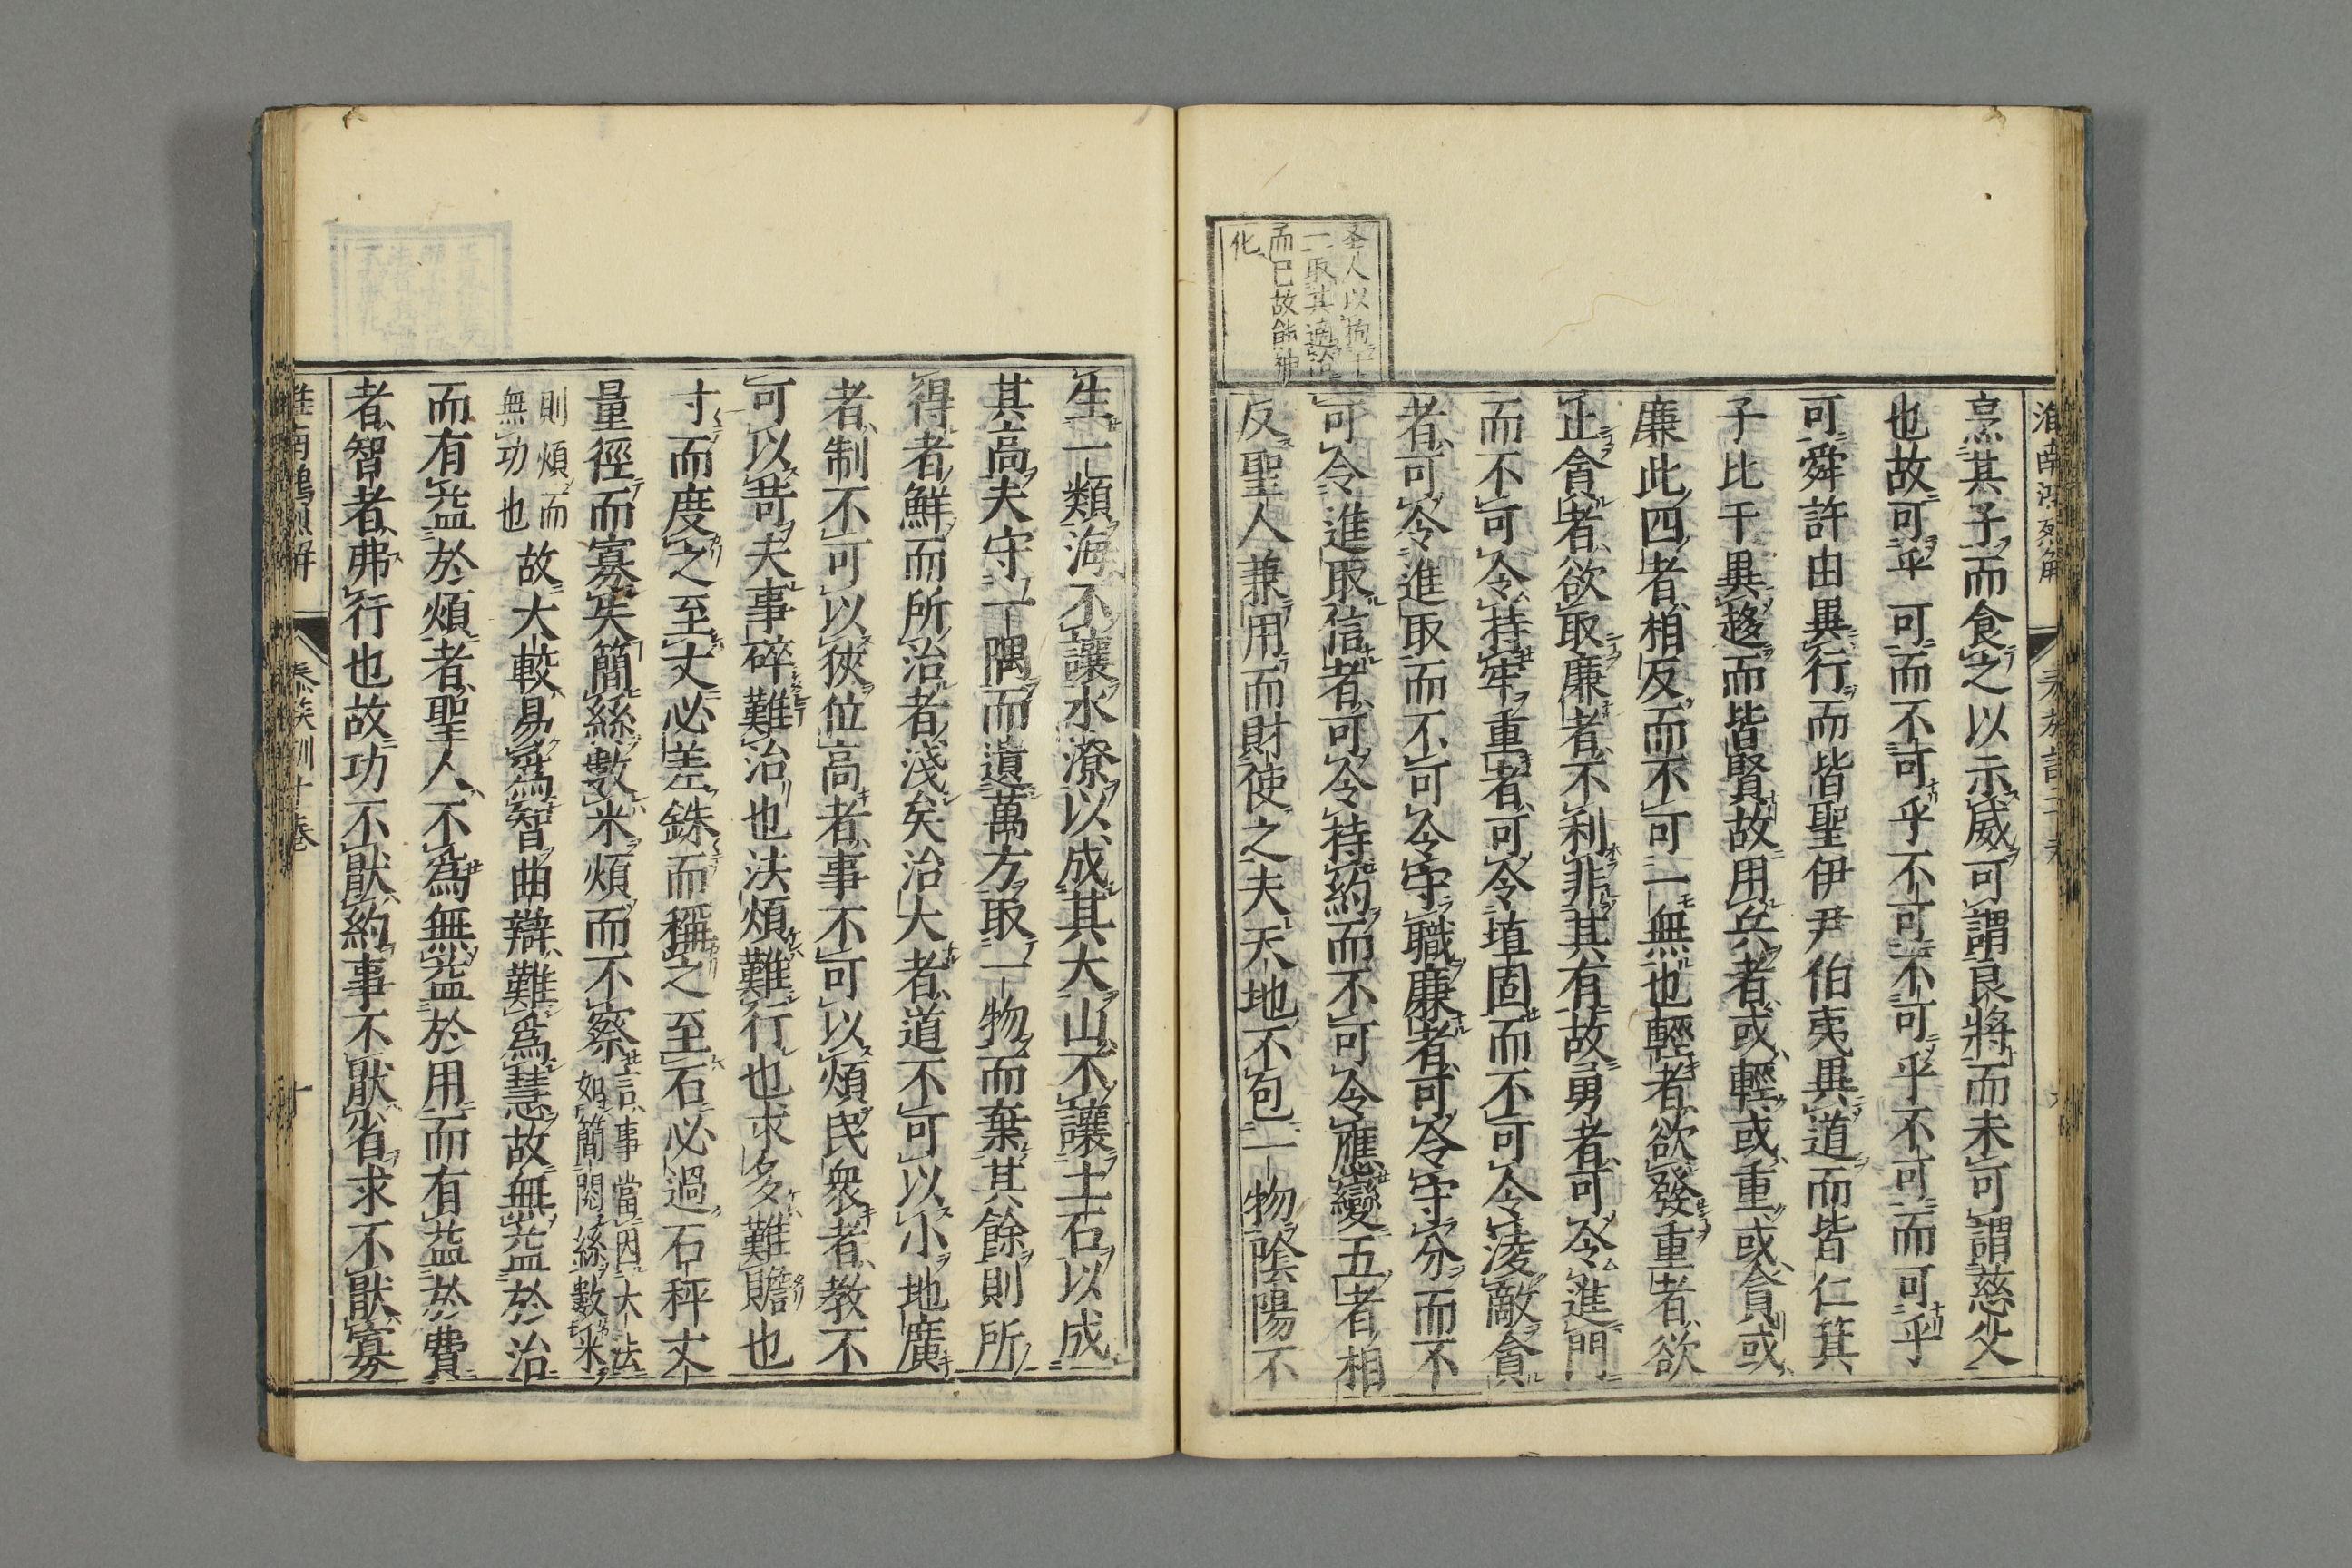 淮南鴻烈解
烹其子而食之以示威可謂良將而未可謂慈父
也故可乎可而不可乎不可不可乎不可而可乎
可舜許由異行而皆聖伊尹伯夷異道而皆仁箕
子比干異趍而皆賢故用兵者或輕或重或貪或
廉此四者相反而不可一無也輕者欲發重者欲
止貪者欲取廉者不利非其有故勇者可令進鬥
而不可令持牢重者可令埴固而不可令淩敵貪
者可令進取而不可令守職廉者可令守分而不
可令進取信者可令持約而不可令應變五者相
反聖人兼用而財使之夫天地不包一物陰陽不
一取其適治
而已故能神
化
生一類海不讓水潦以成其大山不讓土石以成
其高夫守一隅而遺萬方取一物而棄其餘則所
得者鮮而所治者淺矣治大者道不可以小地廣
者制不可以狹位高者事不可以煩民衆者教不
可以苛夫事碎難治也法煩難行也求多難贍也
寸而度之至丈必差銖而稱之至石必過石秤丈
量徑而寡失簡絲數米煩而不察言事當因大法如簡閱絲數米
則煩而無功也故大較易爲智曲辯難爲慧故無益於治
而有益於煩者聖人不為無益於用而有益於費
者智者弗行也故功不厭約事不厭省求不厭寡
淮南鴻烈解 泰族訓十巻 十